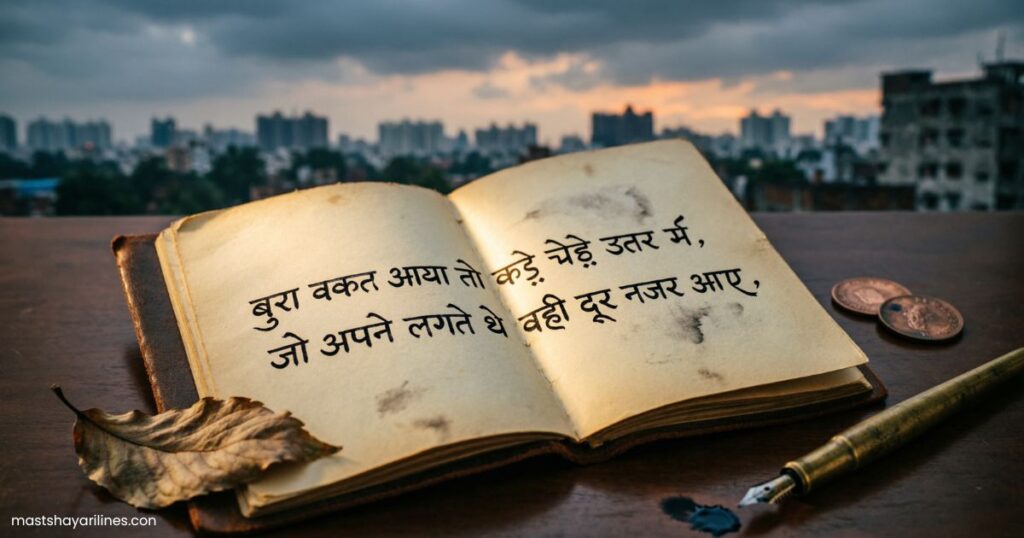 बुरा वकत आया तो कड़े़ चेड़े़ उतर र्म,
जो अपने लगते थे वही दूर नजर आए,
mastshayarilines.com